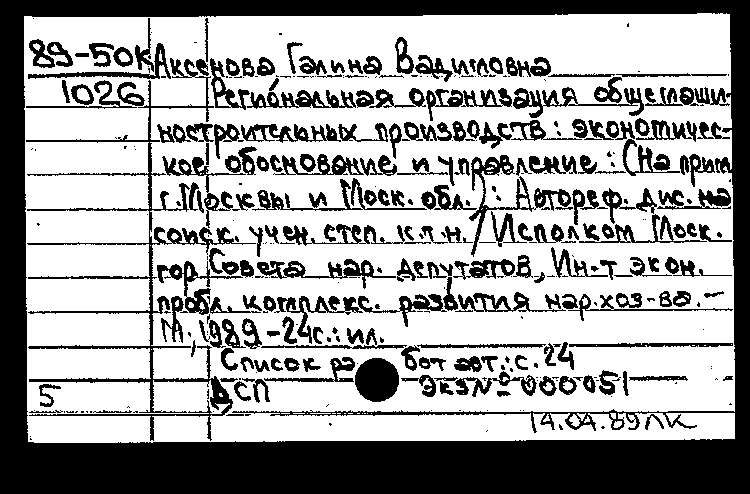 89-50к Аксенова Галина Вадимовна
1026 Региональная организация общемаши-
ностроительных производств: экономичес-
кое обоснование и управление: (На прим.
г. Москвы и Моск. обл.): Автореф. дис. на
соиск. учен. степ. к.т.н. / Исполком Моск.
гор. Совета нар. депутатов, Ин-т экон.
пробл. комплекс. развития нар. хоз-ва. -
М., 1989 - 24 с.: ил.
Список работ авт.: с. 24
5 ДСП Экз № 000051
14.04.89 ЛК